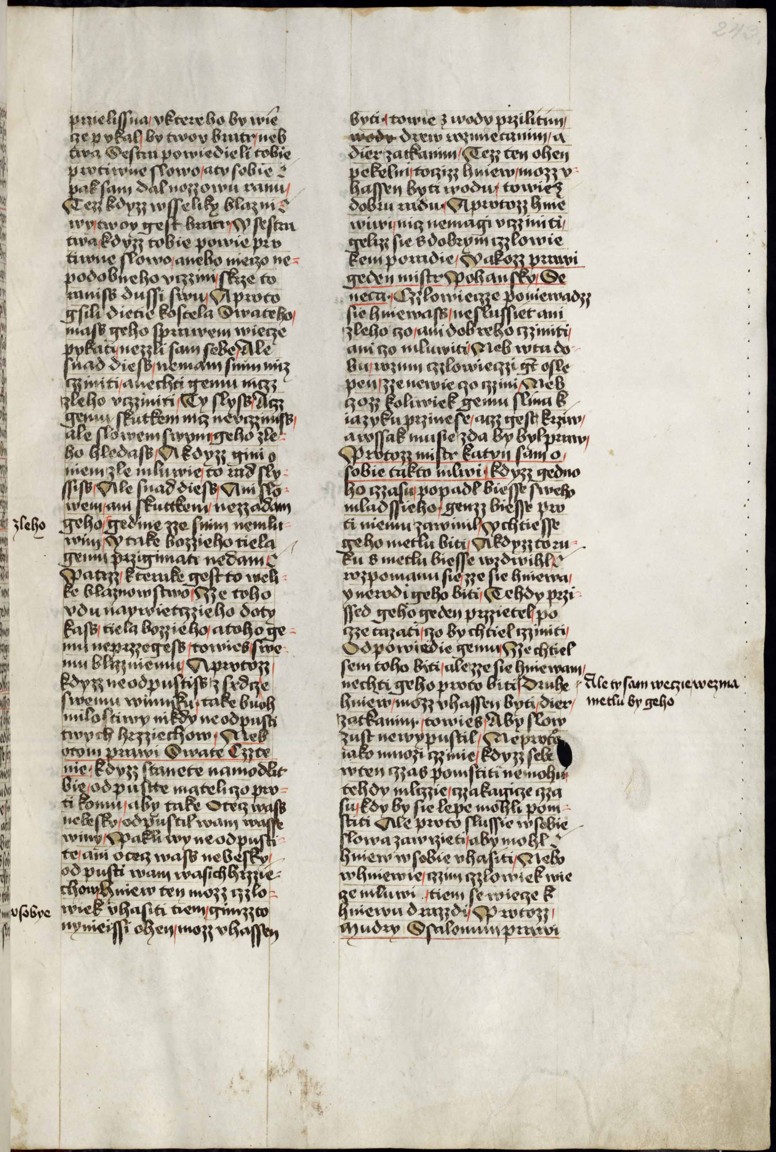 243
przielissna, vktereho by wie
cze pykal, by twoy bratr, neb
twa Sestra powiedieli tobie
protiwne slowo, aty sobie
pak sam dal nozzowu ranu,
Tezz kdyzz wsseliky blazni
wy, twoy gest bratr, Y sestra
twa, kdyzz tobie powie pro
tiwne slowo, anebo nieczo ne-
podobneho vczini, skrze to
raniss dussi swu, A proto
gsili dietie kostela Swateho,
mass geho sprawem wiecze
pykati, nezzli sam sebe, Ale
snad diess, nemam snim nicz
cziniti, anechti gemu niczz
zleho vcziniti, Ty slyss, Aczz
gemu skutkem nicz nevcziniss,
ale slowem swym, geho zle-
ho hledass, A kdyzz gini o
niem zle mluwie, to rad sly-
ssiss, Ale snad diess, Ani slo-
wem, ani skutkem, nezzadam
zleho
geho, gedine zze snim nemlu-
wim, Y take bozzieho tiela
gemu przigimati nedam
Patrz, kterake gest to weli-
ke blaznowstwo, Zze toho
vdu naywietczzieho doty
kass, tiela bozzieho, atoho ge-
mu neprzzegess, towiess swe-
mu blizniemu, A protozz,
kdyzz neodpustiss z srdcze
swemu winniku, take buoh
milostiwy nikdy neodpusti
twych hrzziechow, Neb
otom prawi Swate Czzte
nie, kdyzz stanete namodlit
bie, odpustte mateli czo pro-
ti komu, aby take Otecz wass
nebesky, odpustil wam wasse
winy, Pakli wy neodpusti-
te, ani otecz wass nebesky,
odpusti wam wasich hrzzie-
chow, hniew ten mozz czzlo-
wiek vhasiti tiem, gimzzto
vsobye
nyniessi ohen, mozz vhassen
byti, towie z wody przilitim,
wody drew wzmietanim, a
dier zatkanim, Tezz ten ohen
pekelni, tozizz hniew, mozz v-
hassen byti wodu, towiez
dobru radu, A protozz hnie
wiwi, nicz nemagi vcziniti,
gelizz sie s dobrym czzlowie
kem poradie, Yakozz prawi
geden mistr Pohansky, Se
neca, Czzlowieczze poniewadzz
sie hniewass, neslussiet ani
zleho czo, ani dobreho cziniti,
ani czo mluwiti, Neb w tu do-
bu, rozum czzlowieczi gest osle
pen, zze newie czo czini, Neb
czozz koliwiek gemu slina k
iazyku przinese, aczz gest krziw,
awssak musie zda by byl praw,
Protozz mistr Katyn sam o
sobie takto mluwi, kdyzz gedno
ho czzasu, popadl biesse sweho
mladssieho, genzz biesse pro
ti niemu zawinil, Y chtiesse
geho metlu biti, A kdyzz to ru-
ku s metlu biesse wzdwihl
rozpomanu sie, zze sie hniewa,
y nerodi geho biti, Tehdy przi-
ssed geho geden przzietel, po
czze tazati, czo by chtiel cziniti,
Odpowiedie gemu, Zze chtiel
sem toho biti, ale zze sie hniewam,
nechti geho proto biti, Druhe
Ale ty sam wezzie wezma
metlu by geho
hniew, mozz vhassen byti, dier,
zatkanim, towies, Aby slow
zust newypustil, Neproto
iako mnozi czinie, kdyzz sebe
w ten czzas pomstiti nemohu,
tehdy mlczzie, czzakagicze czza
su, kdy by sie lepe mohli pom-
stiti, Ale proto slussie w sobie
slowa zawrzieti, aby mohl
hniew w sobie vhasiti, Nebo
w hniewie, czim czzlowiek wie
cze mluwi, tiem se wiecze k
hniewu drazzdi, Protozz,
Mudry Ssalomun prawi